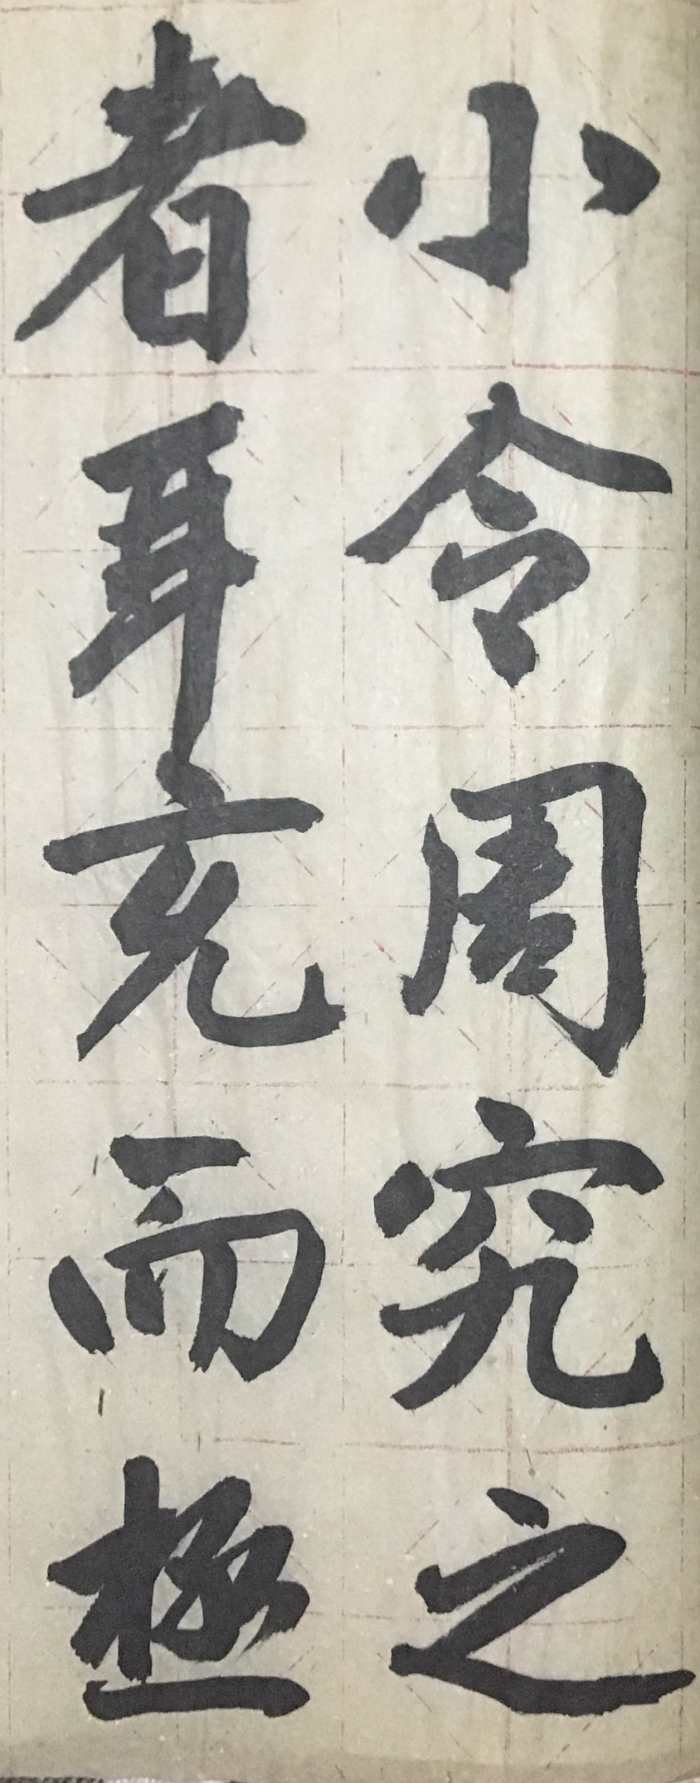 小令周究之
者耳充而極